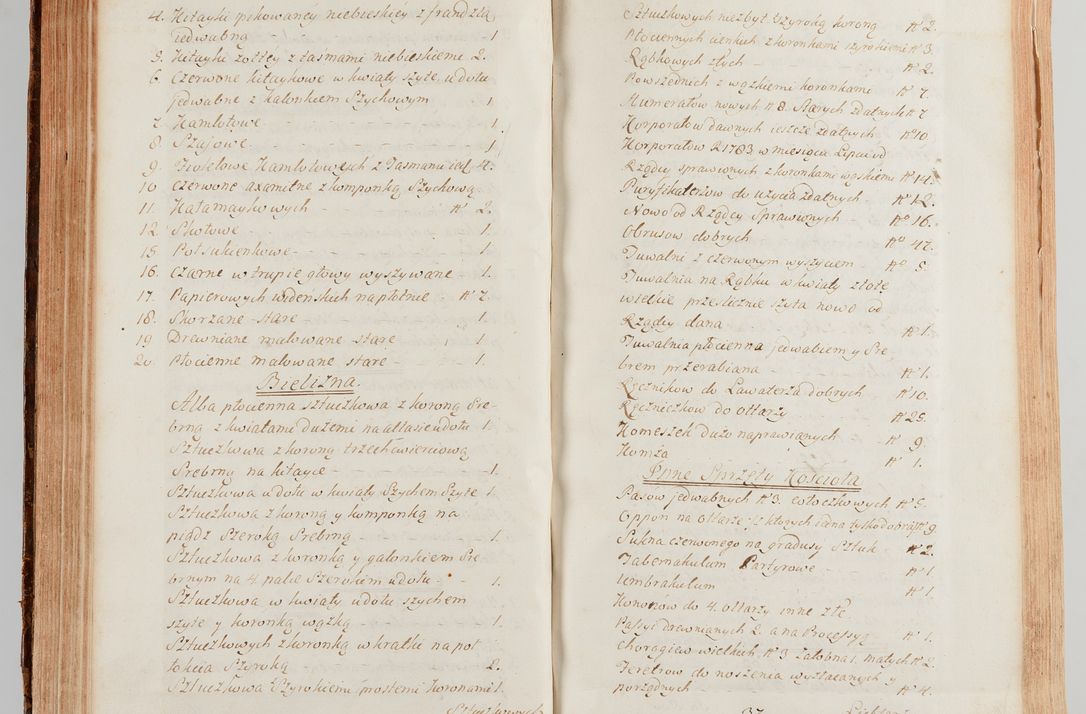 4. Kitayki pikowaney niebieskiey z frandzlą
jedwabną - 1
5. Kitayki żołtey z tasmami niebieskiemi 2.
6. Czerwone kitaykowe w kwiaty szyte, u dołu
jedwabne z Kalonkiem Szychowym 1.
7. Kamlotowe - 1.
8. Szajowe - 1
9. Fioletowe Kamlotowych z Tasmami 4.
10 Czerwone axamitne z komponką Szychową
11. Katamaykowych - N° 2.
12. Skotowe - 1.
15. Potsukienkowe - 1.
16. Czarne w trupie głowy wyszywane 1.
17. Papierowych wideńskich na płotnie - N° 7.
18. Skorzane stare - 1.
19 Drewniane malowane stare 1.
20 Płocienne malowane stare - 1.
Bielizna.
Alba płocienna sztuczkowa z koroną Sre-
brną z kwiatami dużemi na atłasie u dołu 1.
Sztuczkowa z koroną trzechćwierciową
Srebrną na kitayce - 1.
Sztuczkowa u dołu w kwiaty Szychem Szyte 1.
Sztuczkowa z koroną y komponką na
piądz Szeroką Srebrną - 1.
Sztuczkowa z koronką y galonkiem Sre-
brnym na 4. palce Szerokiem u dołu - 1.
Sztuczkowa w kwiaty u dołu szychem
szyte y koronką wązką - 1.
Sztuczkowych z koronką w kratki na poł
łokcia Szyroką - 2.
Sztuczkowa Szyrokiemi prostemi koronami 1.
Sztuczkowych
Sztuczkowych niezbyt Szyroką koroną N° 2.
Płociennych cienkich z koronkami szyrokiemi N° 3
Rąbkowych złych - N° 2.
Powszednich z wązkiemi koronkami N° 7.
Humerałow nowych N° 8. Starych zdatnych N° 7
Korporałow dawnych ieszcze zdatnych N° 10.
Korporałow R. 1783 w miesiącu Lipcu od
Rządcy sprawionych z koronkami wąskiemi N° 14.
Puryfikaterzow do użycia zdatnych - N° 12.
Nowo od Rządcy Sprawionych N° 16.
Obrusow dobrych N° 47.
Tuwalni z czerwonym wyszyciem - N° 5.
Tuwalnia na Rąbku w kwiaty złote
wielkie przeslicznie szyta nowo od
Rządcy dana N° 1.
Tuwalnia płocienna jedwabiem y Sre-
brem przerabiana - N° 1.
Ręcznikow do Lawaterza dobrych - N° 10.
Ręczniczkow do ołtarzy N° 25.
Komeszek dużo naprawianych - N° 9.
Komza N° 1.
Inne Sprzęty Kościoła
Pasow jedwabnych N° 3. włoczkowych N° 5.
Oppon na ołtarze z ktorych iedna tylko dobra N° 9
Sukna czerwonego na gradusy Sztuk - N° 2.
Tabernakulum Partyrowe - N° 1
Umbrakulum N° 1.
Konorow do 4. ołtarzy inne złe
Passyi drewnianych 2. a na Processyą N° 1.
Chorągiew wielkich N° 3 żałobna 1. małych N° 2.
Feretrow do noszenia wyzłacanych y
porządnych - N° 4.
37